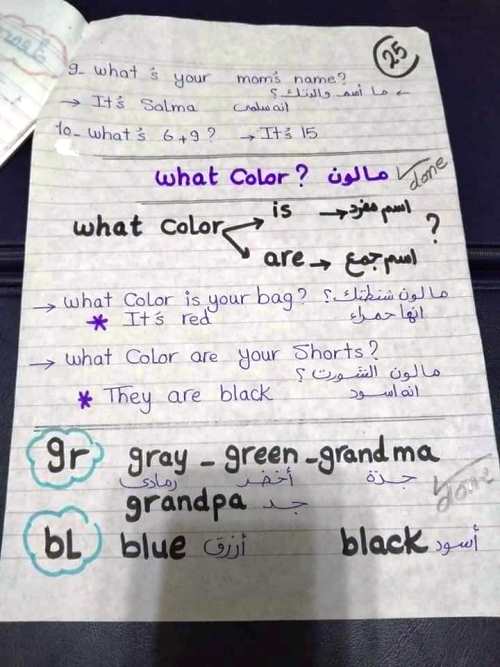 25
9- what's your mom's name?
← ما أسم والدتك؟
→ It's Salma انه سلمى
10- what's 6+9? → It's 15
what Color? ما لون done
what Color is → اسم مفرد
are → اسم جمع ?
→ what Color is your bag? ما لون شنطتك؟
* It's red انها حمراء
→ what Color are your Shorts?
ما لون الشورت؟
* They are black انه اسود
gr gray - green - grandma
رمادى أخضر جدة
grandpa جد done
bL blue أزرق black أسود